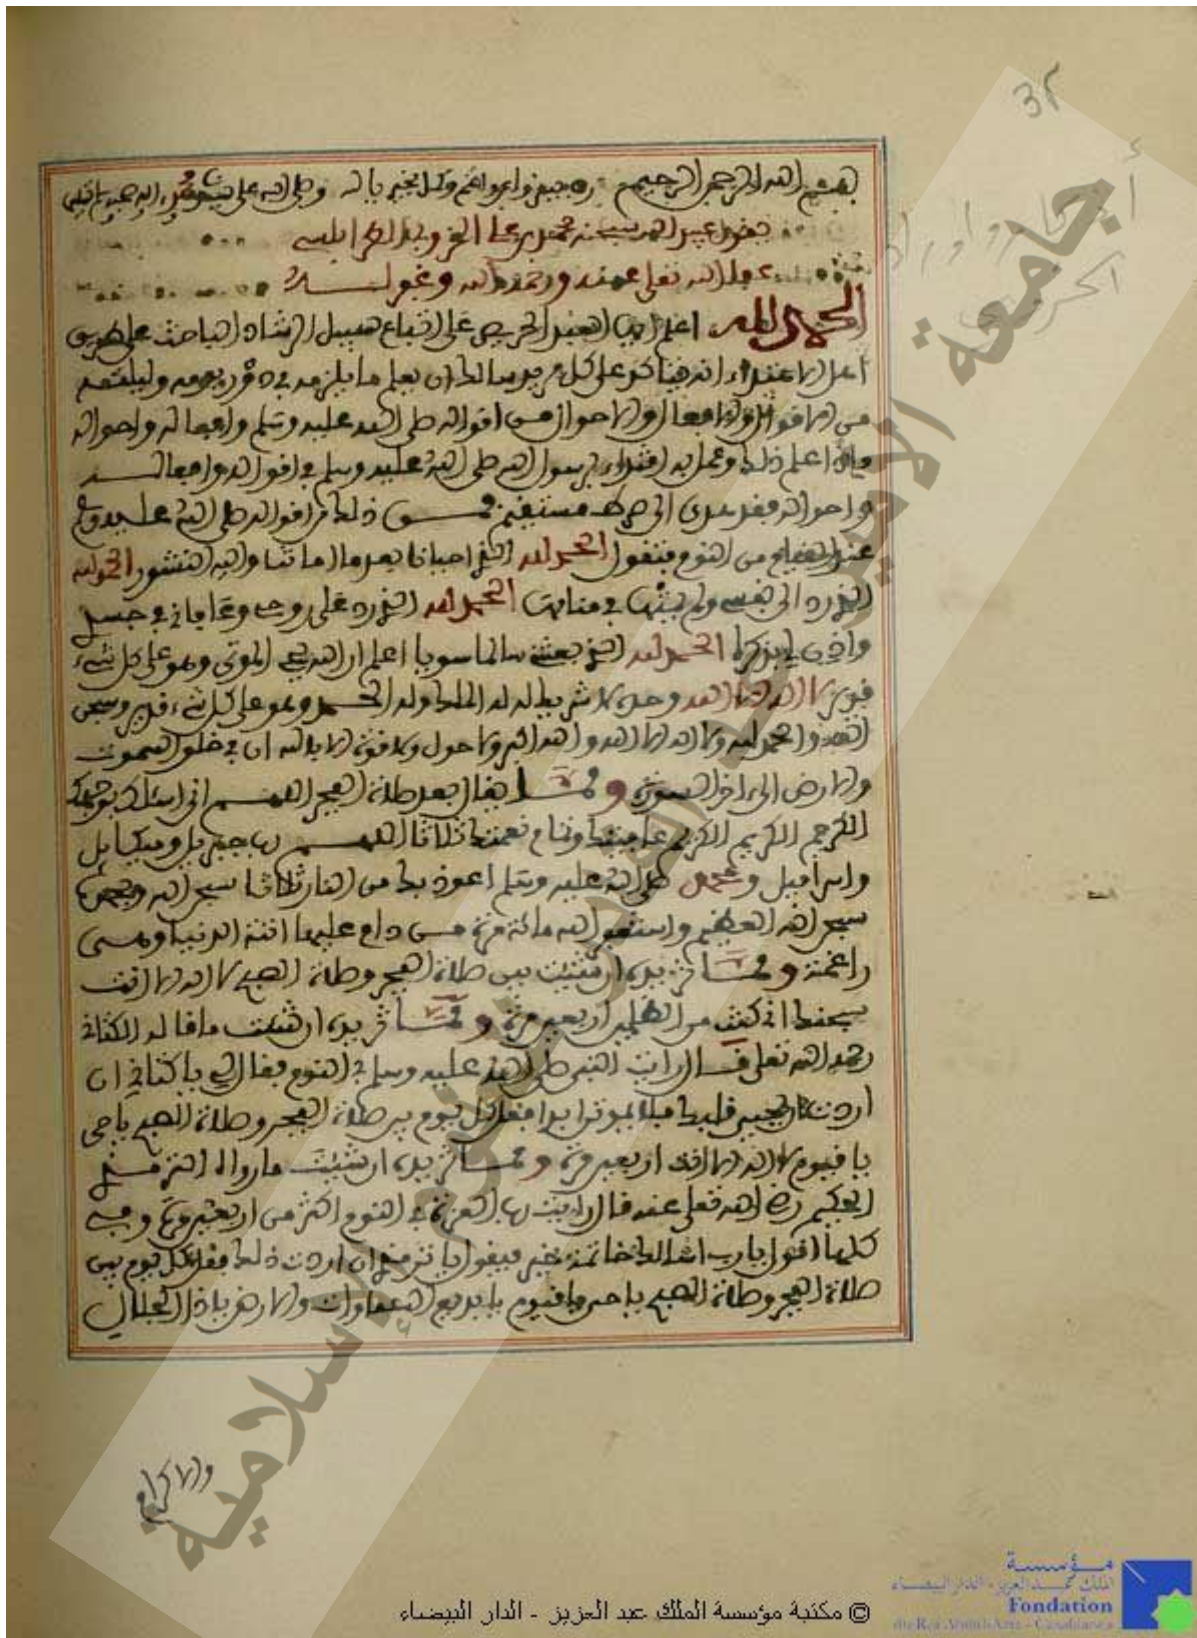 32
بسم الله الرحمن الرحيم وصلى الله على
يقول عبد الله سبحنه محمد بن علي الخروبي الطرابلسي
عفا الله تعلى عنه ورحمه الله وغفر له
الحمد لله اعلم ايها العبد الحريص على اتباع سبيل الرشاد الباحث على طريق
اهل الاعتداء انه يتاكد على كل مريد سالك ان يعلم ما يلزمه في ورد يومه وليلته
من الاقوال والافعال والاحوال من اقواله صلى الله عليه وسلم وافعاله واحواله
فاذا علم ذلك وعمل به اقتداء برسول الله صلى الله عليه وسلم في اقواله وافعاله
واحواله فقد هدي الى صراط مستقيم فمن ذلك من اقواله صلى الله عليه وسلم
عند القيام من النوم فتقول الحمد لله الذي احيانا بعد ما اماتنا واليه النشور الحمد لله
الذي رد الي نفسي ولم يمتها في منامها الحمد لله الذي رد علي روحي وعافاني في جسدي
واذن لي بذكره الحمد لله الذي بعثني سالما سويا اعلم ان الله يحي الموتى وهو على كل شيء
قدير لا اله الا الله وحده لا شريك له له الملك وله الحمد وهو على كل شيء قدير وسبحن
الله والحمد لله ولا اله الا الله والله اكبر ولا حول ولا قوة الا بالله ان في خلق السموت
والارض الى اخر السورة ومما يقال بعد صلاة الفجر اللهم اني اسئلك بوجهك
الكريم الكريم الكريم عافيتك وتمام نعمتك ثلاثا اللهم رب جبريل وميكايل
واسرافيل ومحمد صلى الله عليه وسلم اعوذ بك من النار ثلاثا سبحن الله وبحمده
سبحن الله العظيم واستغفر الله مائة مرة من دام عليها اتته الدنيا وهي
راغمة ومما تزيده ان شئت بين صلاة الفجر وصلاة الصبح لا اله الا انت
سبحنك اني كنت من الظلمين اربعين مرة ومما تزيده ان شئت ما قاله الكتاني
رحمه الله تعلى قال رايت النبي صلى الله عليه وسلم في النوم فقال لي يا كتاني ان
اردت ان يحيى قلبك فلا يموت ابدا فقل كل يوم بين صلاة الفجر وصلاة الصبح يا حي
يا قيوم لا اله الا انت اربعين مرة ومما تزيده ان شئت ما رواه الترمذي
الحكيم رضي الله تعلى عنه قال رايت رب العزة في النوم اكثر من اربعين مرة وفي
كلها اقول يا رب اسالك خاتمة خير فيقول يا ترمذي ان اردت ذلك فقل كل يوم بين
صلاة الفجر وصلاة الصبح يا حي يا قيوم يا بديع السماوات والارض يا ذا الجلال
والاكرام
جامعة الامير عبد القادر للعلوم الإسلامية
© مكتبة مؤسسة الملك عبد العزيز - الدار البيضاء
مؤسسة
الملك عبد العزيز - الدار البيضاء
Fondation
du Roi Abdul-Aziz - Casablanca